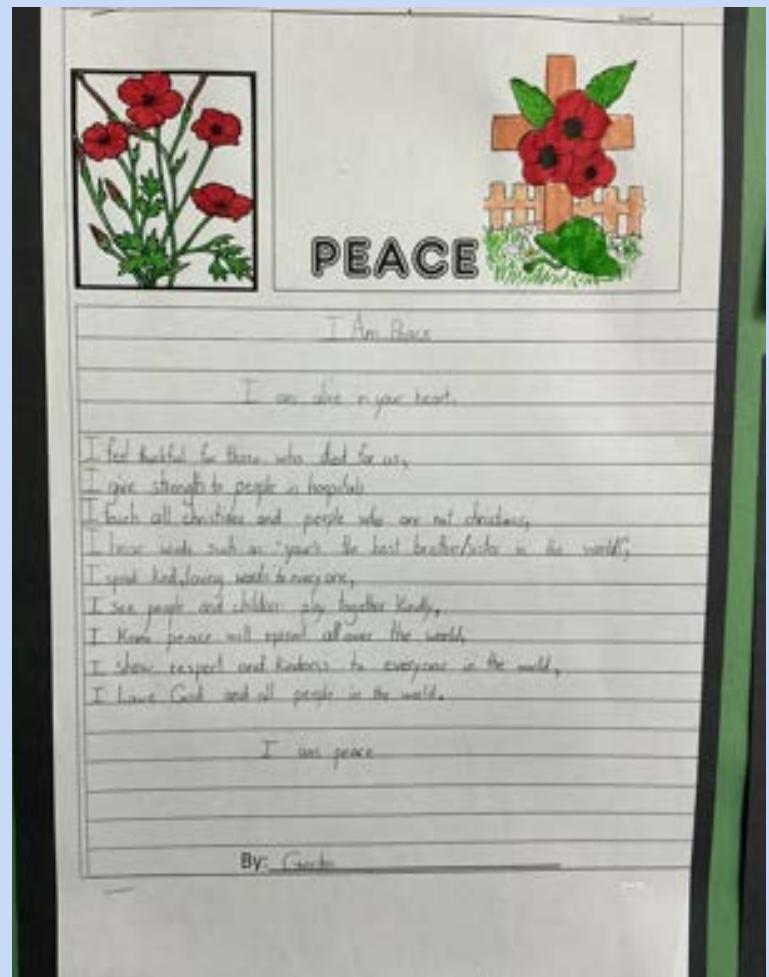 PEACE
I Am Peace
I am alive in your heart.
I feel thankful for those who died for us,
I give strength to people in hospitals
I touch all christians and people who are not christians,
I hear words such as "your's the best brother/sister in the world",
I speak kind, loving words to everyone,
I see people and children play together kindly,
I know peace will spread all over the world,
I show respect and kindness to everyone in the world,
I love God and all people in the world.
I am peace
By: